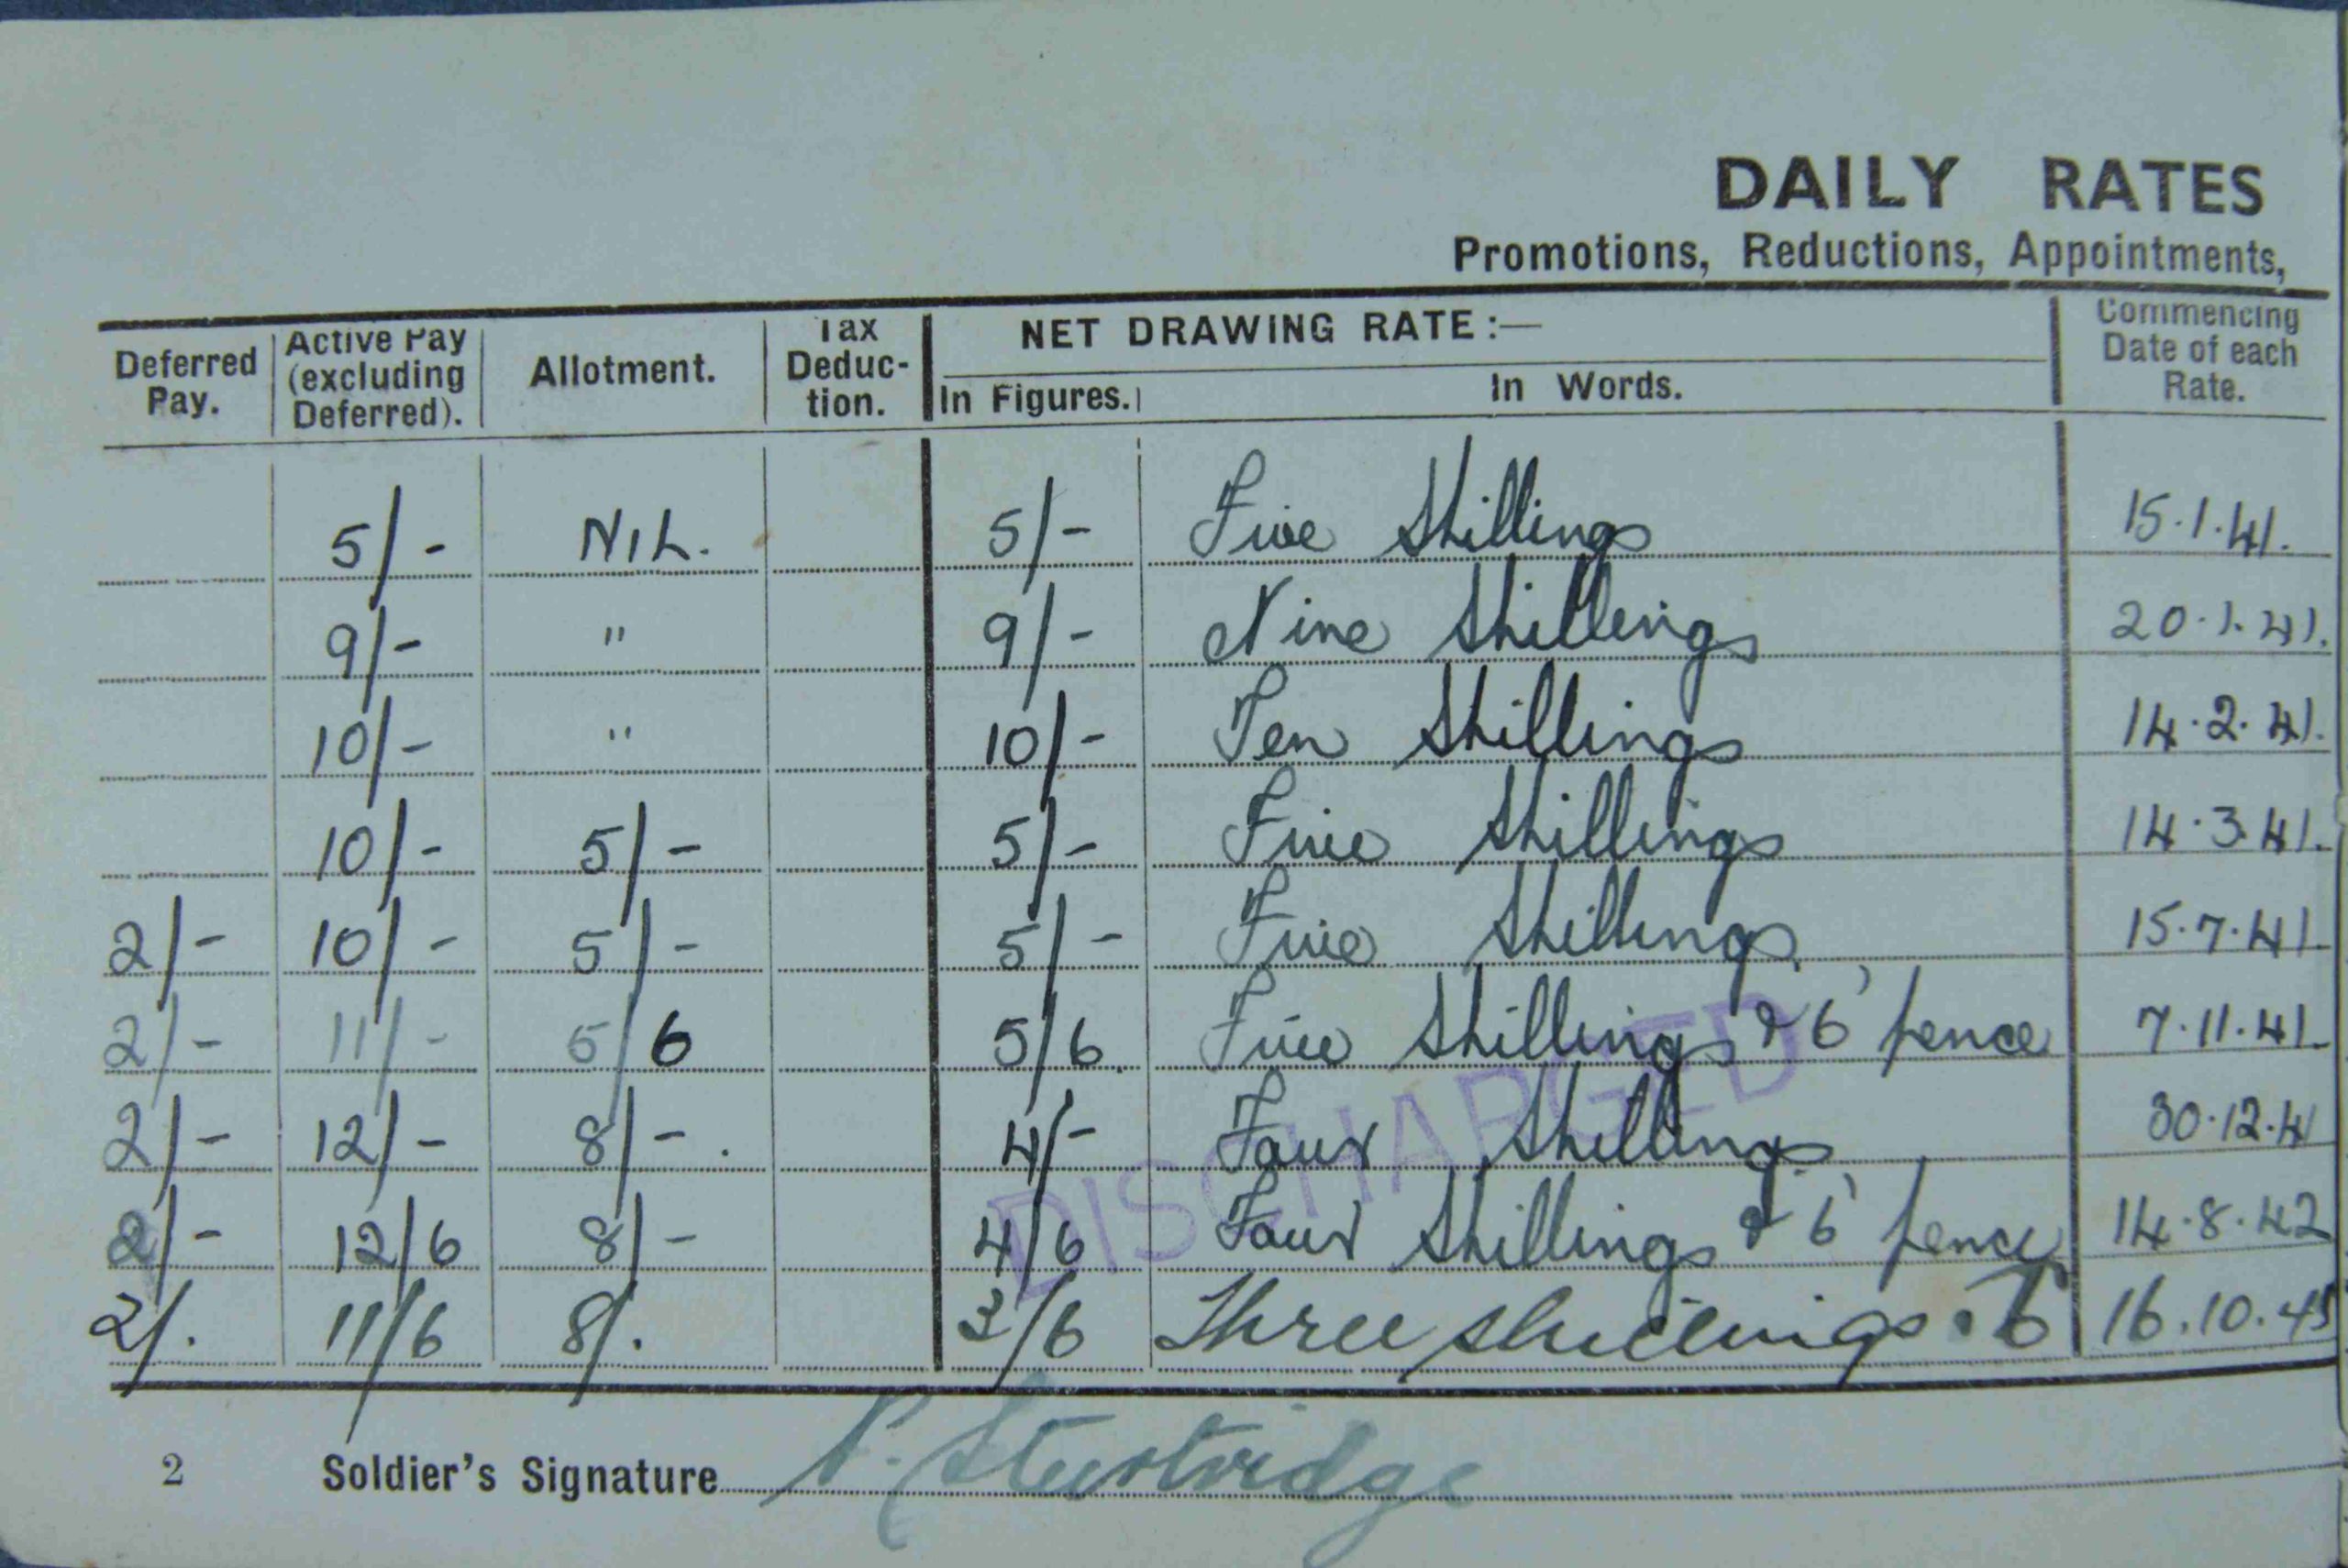 DAILY RATES
Promotions, Reductions, Appointments,
Deferred Pay. Active Pay (excluding Deferred). Allotment. Tax Deduc-tion. NET DRAWING RATE:— In Figures. In Words. Commencing Date of each Rate.
5/- NIL. 5/- Five Shillings 15.1.41.
9/- " 9/- Nine Shillings 20.1.41.
10/- " 10/- Ten Shillings 14.2.41.
10/- 5/- 5/- Five Shillings 14.3.41.
2/- 10/- 5/- 5/- Five Shillings 15.7.41.
2/- 11/- 5/6 5/6 Five Shillings & 6 pence 7.11.41.
2/- 12/- 8/- 4/- Four Shillings 30.12.41
2/- 12/6 8/- 4/6 Four Shillings & 6 pence 14.8.42
2/. 11/6 8/. 3/6 Three shillings . 6 16.10.45
DISCHARGED
2 Soldier's Signature